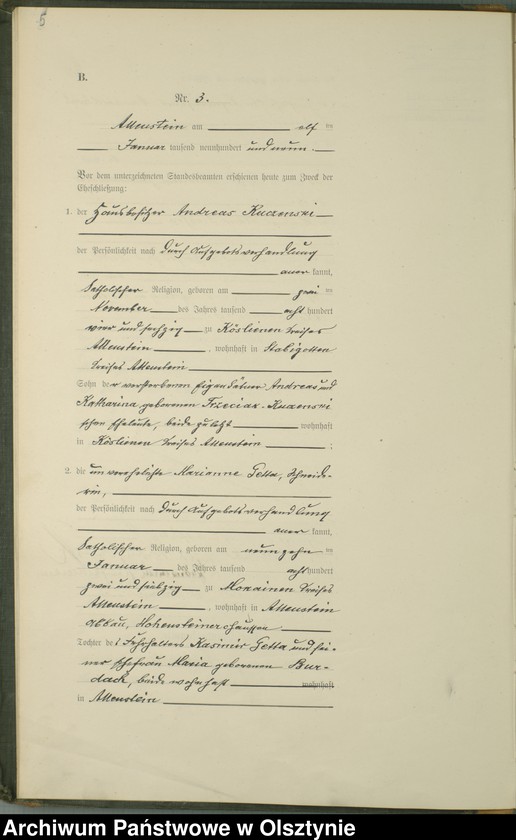 5
B.
Nr. 3.
Allenstein am elf ten
Januar tausend neunhundert und neun.
Vor dem unterzeichneten Standesbeamten erschienen heute zum Zweck der
Eheschließung:
1. der Hausbesitzer Andreas Kuczenski
der Persönlichkeit nach durch Aufgebotsverhandlung
aner kannt,
katholischer Religion, geboren am zwei ten
November des Jahres tausend acht hundert
vier und sechzig zu Köslienen Kreises
Allenstein, wohnhaft in Stabigotten
Kreises Allenstein
Sohn der verstorbenen Eigenkätner Andreas und
Katharina geborenen Trzeciak-Kuczenski
schen Eheleute, beide zuletzt wohnhaft
in Köslienen Kreises Allenstein;
2. die unverehelichte Marianne Getta, Schneide-
rin,
der Persönlichkeit nach durch Aufgebotsverhandlung
aner kannt,
katholischer Religion, geboren am neunzehn ten
Januar des Jahres tausend acht hundert
zwei und siebzig zu Mokainen Kreises
Allenstein, wohnhaft in Allenstein
Abbau, Hohensteinerchaussee
Tochter des Kasimir Getta und sei-
ner Ehefrau Maria geborenen Bur-
dack, beide wohnhaft wohnhaft
in Allenstein
Archiwum Państwowe w Olsztynie